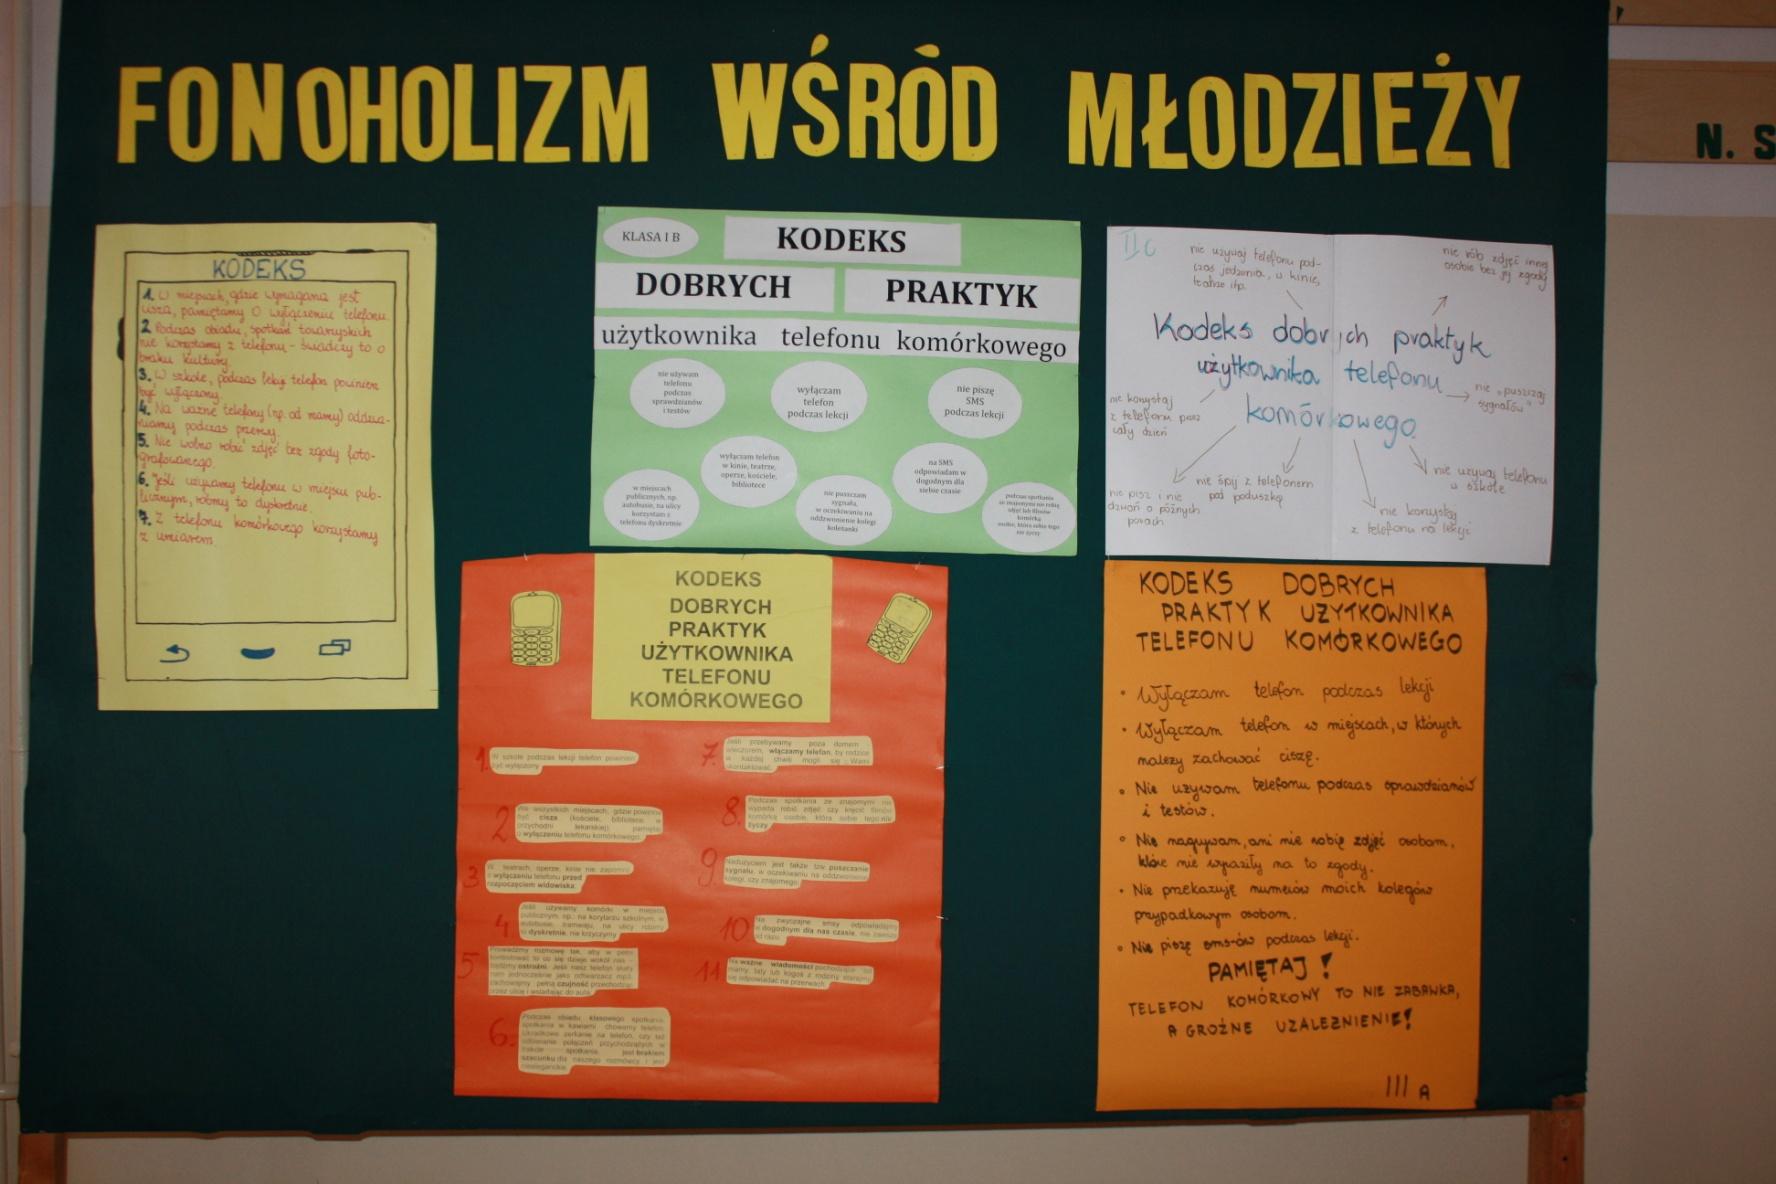 FONOHOLIZM WŚRÓD MŁODZIEŻY
N. S
KODEKS
1. W miejscach, gdzie wymagana jest
cisza, pamiętamy o wyłączeniu telefonu.
2 Podczas obiadu, spotkań towarzyskich
nie korzystamy z telefonu - świadczy to o
braku kultury.
3. W szkole, podczas lekcji telefon powinien
być wyłączony.
4. Na ważne telefony (np. od mamy) oddzwa-
niamy podczas przerwy.
5. Nie wolno robić zdjęć bez zgody foto-
grafowanego.
6. Jeśli używamy telefonu w miejscu pub-
licznym, róbmy to dyskretnie.
7. Z telefonu komórkowego korzystamy
z umiarem
KLASA I B
KODEKS
DOBRYCH PRAKTYK
użytkownika telefonu komórkowego
nie używam
telefonu
podczas
sprawdzianów
i testów
wyłączam
telefon
podczas lekcji
nie piszę
SMS
podczas lekcji
wyłączam telefon
w kinie, teatrze,
operze, kościele,
bibliotece
na SMS
odpowiadam w
dogodnym dla
siebie czasie
w miejscach
publicznych, np.
autobusie, na ulicy
korzystam z
telefonu dyskretnie
nie puszczam
sygnału,
w oczekiwaniu na
oddzwonienie kolegi
koleżanki
podczas spotkania
ze znajomymi nie robię
zdjęć lub filmów
komórką
osobie, która sobie tego
nie życzy
II c
nie używaj telefonu pod-
czas jedzenia, w kinie,
teatrze itp.
nie rób zdjęć innej
osobie bez jej zgody
Kodeks dobrych praktyk
użytkownika telefonu
komórkowego
nie „puszczaj
sygnałów"
nie korzystaj
z telefonu przez
cały dzień
nie pisz i nie
dzwoń o późnych
porach
nie śpij z telefonem
pod poduszką
nie korzystaj
z telefonu na lekcji
nie używaj telefonu
w szkole
KODEKS
DOBRYCH
PRAKTYK
UŻYTKOWNIKA
TELEFONU
KOMÓRKOWEGO
1. W szkole podczas lekcji telefon powinien
być wyłączony.
2 We wszystkich miejscach, gdzie powinna
być cisza (kościele, bibliotece, w
przychodni lekarskiej) pamiętaj
o wyłączeniu telefonu komórkowego.
3 W teatrach, operze, kinie nie zapomnij
o wyłączeniu telefonu przed
rozpoczęciem widowiska.
4 Jeśli używamy komórki w miejscu
publicznym, np.: na korytarzu szkolnym, w
autobusie, tramwaju, na ulicy róbmy
to dyskretnie, nie krzyczymy.
5 Prowadźmy rozmowę tak, aby w pełni
kontrolować to co się dzieje wokół nas -
bądźmy ostrożni. Jeśli nasz telefon służy
nam jednocześnie jako odtwarzacz mp3,
zachowajmy pełną czujność przechodząc
przez ulicę i wsiadając do auta.
6. Podczas obiadu, klasowego spotkania,
spotkania w kawiarni chowamy telefon.
Ukradkowe zerkanie na telefon, czy też
odbieranie połączeń przychodzących w
trakcie spotkania, jest brakiem
szacunku dla naszego rozmówcy i jest
nieeleganckie.
7. Jeśli przebywamy poza domem
wieczorem, włączamy telefon, by rodzice
w każdej chwili mogli się z Wami
skontaktować.
8. Podczas spotkania ze znajomymi nie
wypada robić zdjęć czy kręcić filmów
komórką osobie, która sobie tego nie
życzy.
9. Nadużyciem jest także tzw puszczanie
sygnału, w oczekiwaniu na oddzwonienie
kolegi, czy znajomego.
10 Na zwyczajne smsy odpowiadajmy
w dogodnym dla nas czasie, nie zawsze
od razu.
11 Na ważne wiadomości pochodzące od
mamy, taty lub kogoś z rodziny starajmy
się odpowiadać na przerwach.
KODEKS DOBRYCH
PRAKTYK UŻYTKOWNIKA
TELEFONU KOMÓRKOWEGO
• Wyłączam telefon podczas lekcji
• Wyłączam telefon w miejscach, w których
należy zachować ciszę.
• Nie używam telefonu podczas sprawdzianów
i testów.
• Nie nagrywam, ani nie robię zdjęć osobom,
które nie wyraziły na to zgody.
• Nie przekazuję numerów moich kolegów
przypadkowym osobom.
• Nie piszę sms-ów podczas lekcji.
PAMIĘTAJ !
TELEFON KOMÓRKOWY TO NIE ZABAWKA,
A GROŹNE UZALEŻNIENIE!
III A